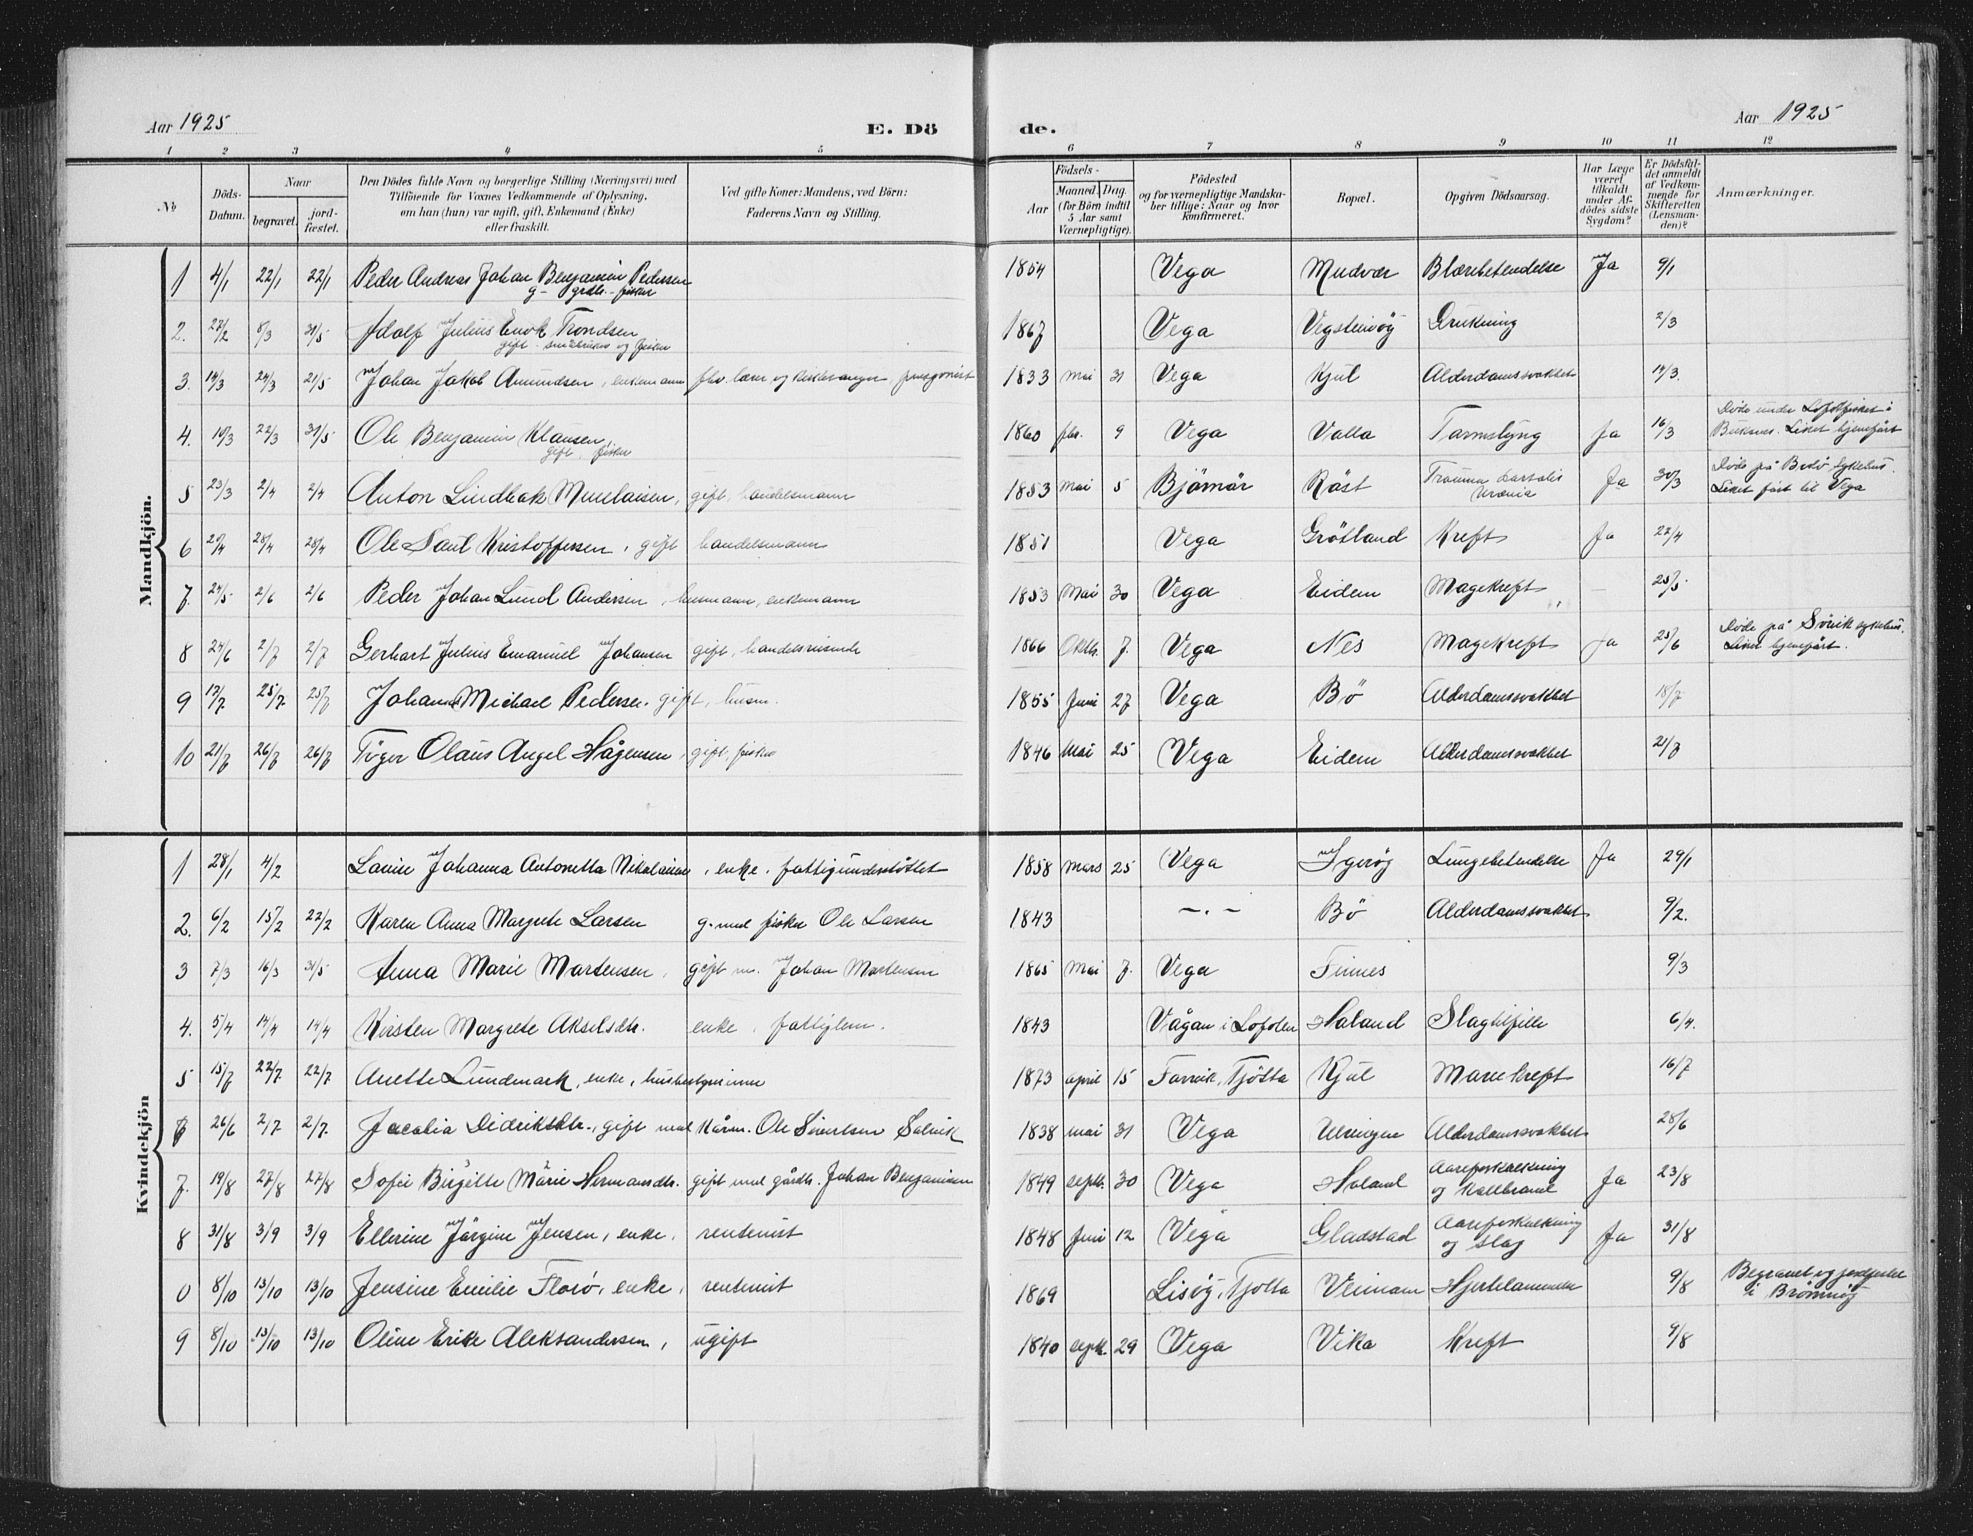 Aar 1925 E. Dö de. Aar 1925
1 2 3 4 5 6 7 8 9 10 11 12
No
Döds-Datum.
Naar
begravet. jord-fæstet.
Den Dödes fulde Navn og borgerlige Stilling (Næringsvei) med
Tilföiende for Voxnes Vedkommende af Oplysning,
om han (hun) var ugift, gift, Enkemand (Enke)
eller fraskilt.
Ved gifte Koner: Mandens, ved Börn:
Faderens Navn og Stilling.
Födsels-
Aar Maaned. Dag.
(for Börn indtil
5 Aar samt
Værnepligtige).
Födested
og for værnepligtige Mandska-
ber tillige: Naar og hvor
konfirmeret.
Bopæl.
Opgiven Dödsaarsag.
Har Læge
været
tilkaldt
under Af-
dödes sidste
Sygdom?
Er Dödsfal-
det anmeldt
af Vedkom-
mende for
Skifteretten
(Lensman-
den)?
Anmærkninger.
Mandkjön.
1 4/1 22/1 22/1 Peder Andreas Johan Benjamin Pedersen 1854 Vega Mudvær Blærebetendelse Ja 9/1
g- grdbr.- fisker
2. 27/2 8/3 31/5 Adolf Julius Enok Trondsen 1867 Vega Vegsteinvög Drukning 2/3
gift. småbruker og fisker
3. 14/3 24/3 21/5 Johan Jakob Amundsen, enkemann fhv. lærer og kirkesanger pensjonist 1833 Mai 31 Vega Kjul Alderdomssvakhet 14/3.
4. 10/3 22/3 31/5 Ole Benjamin Klausen, 1860 febr. 9 Vega Valla Tarmslyng Ja 16/3 Döde under Lofotfisket i
gift, fisker Buksnes. Liket hjemfört
5 23/3 2/4 2/4 Anton Lindbak Menlaisen, gift, handelsmann 1853 Mai 5 Bjørnør Røst Trauma Ja 30/3 Döde på Bodø sykehus.
Liket fört til Vega
6 20/4 28/4 28/4 Ole Paul Kristoffersen, gift handelsmann 1851 Vega Grötland Kreft Ja 22/4
7. 24/5 2/6 2/6 Peder Johan Lund Andersen, husmann, enkemann 1853 Mai 30 Vega Eidem Magekreft - 25/5
8 24/6 2/7 2/7 Gerhart Julius Emanuel Johansen gift, handelsreisende 1866 Oktbr. 7. Vega Nes Magekreft Ja 25/6 Döde på Sövik sykehus.
Liket hjemfört.
9 13/7 25/7 25/7 Johan Michael Pedersen. gift, husm. 1855 Juni 27 Vega Bö Alderdomssvakhet 18/7
10 21/7 26/7 26/7 Töger Olaus Angel Hågensen, gift, fisker 1846 Mai 25 Vega Eidem Alderdomssvakhet 21/7
Kvindekjön
1 28/1 4/2 Lovise Johanna Antonetta Nikolaisen, enke, fattigunderstöttet 1858 Mars 25 Vega Igeröy Lungebetendelse Ja 29/1
2. 6/2 15/2 22/2 Karen Anna Margrete Larsen g. med fisker Ole Larsen 1843 -.- Bö Alderdomssvakhet 9/2.
3 7/3 16/3 31/5 Anna Marie Martensen, gift m. Johan Martensen 1865 Mai 7. Vega Finnes 9/3
4. 5/4 14/4 14/4 Kirsten Margrete Akselsdtr. enke, fattiglem. 1843 Vågan i Lofoten Holand Slagtilfelle 6/4.
5 15/7 22/7 22/7 Anette Lundmark, enke, husbestyrerinne 1873 april 15 Forvik, Tjötta Kjul Mavekreft 16/7
6 26/6 2/7 2/7. Jacobia Didriksdtr., gift med kårm. Ole Sivertsen Salvik 1838 mai 31 Vega Ulvingen Alderdomssvakhet 28/6
7. 19/8 27/8 27/8 Sofie Birgitte Marie Hermansdtr. gift med gårdbr. Johan Benjaminsen 1849 septb. 30 Vega Holand Aareforkalkning Ja 23/8
og Kallbrand
8 31/8 3/9 3/9 Ellerine Jörgine Jensen, enke, rentenist 1848 Juni 12 Vega Gladstad Aareforkalkning Ja 31/8
og slag
0 8/10 13/10 13/10 Jensine Emilie Florö, enke, rentenist 1869 Lisöy, Tjötta Hjertelammelse 9/8 Begravet og jordfestet
i Brönnöy
9 8/10 13/10 13/10 Oline Erike Aleksandersen, ugift 1840 septb. 29 Vega Vika Kreft 9/8